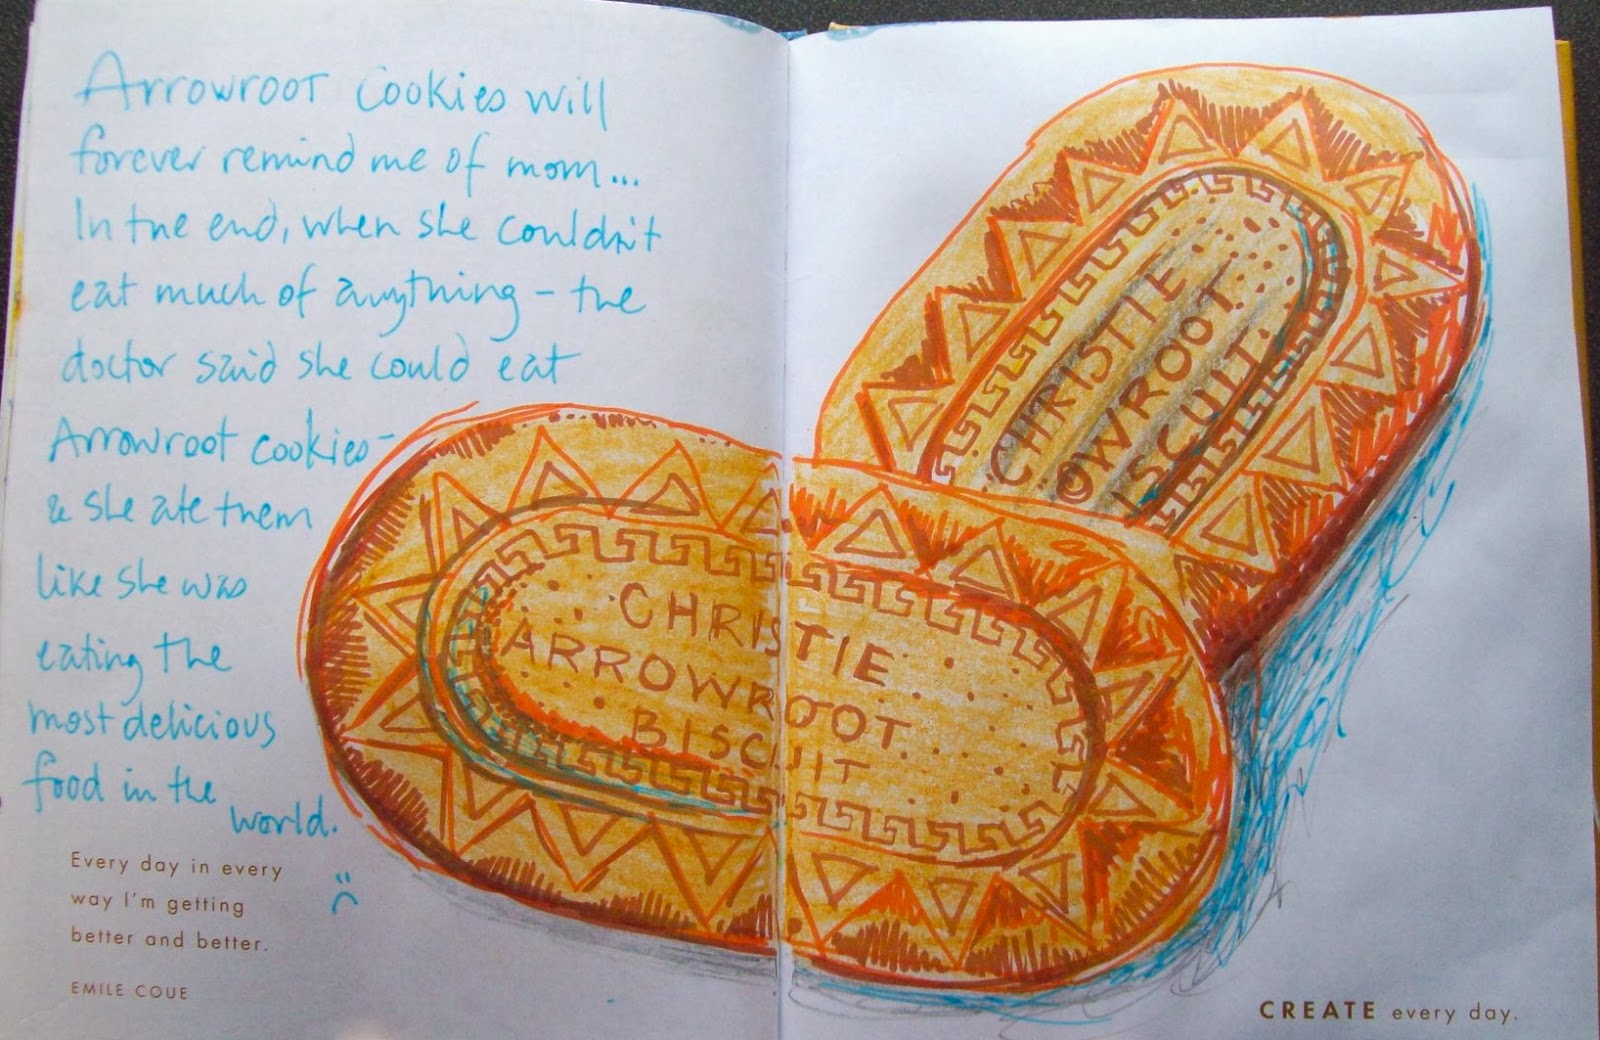 Arrowroot cookies will
forever remind me of mom...
In the end, when she couldn't
eat much of anything – the
doctor said she could eat
Arrowroot cookies –
& she ate them
like she was
eating the
most delicious
food in the
world.
Every day in every
way I'm getting
better and better.
EMILE COUE
CHRISTIE
ARROWROOT
BISCUIT
CHRISTIE
OWROOT
ISCUIT
CREATE every day.